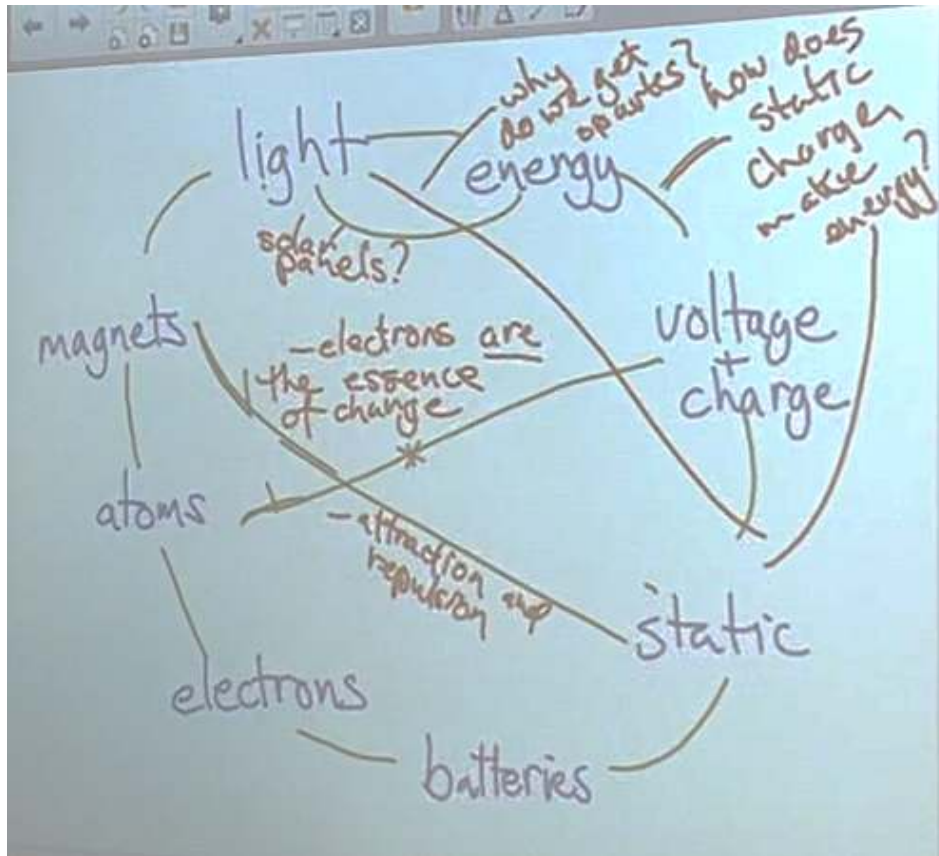 why
do we get
sparks?
how does
static
charge
make
energy?
light
energy
solar
panels?
magnets
-electrons are
the essence
of change
voltage
+
charge
atoms
-attraction
repulsion
static
electrons
batteries